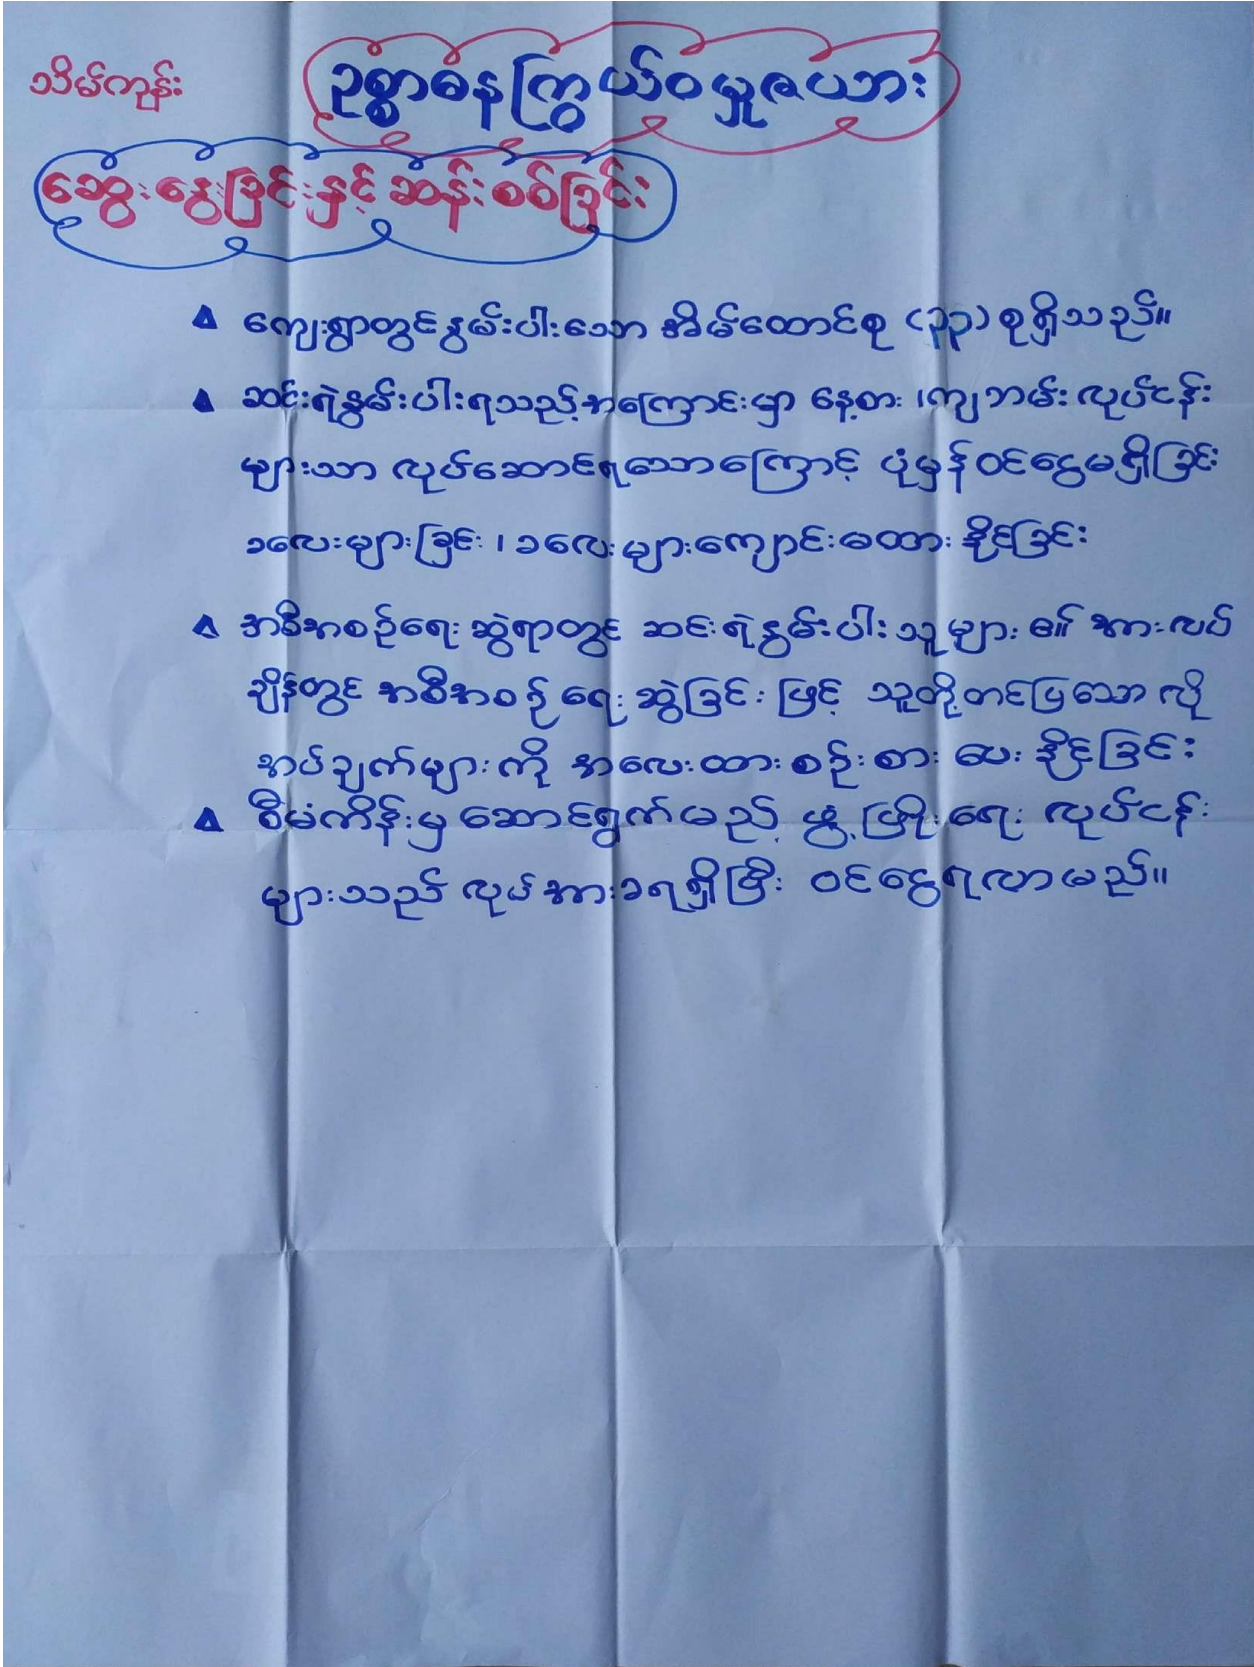 သိမ်ကုန်း
ဥစ္စာဓနကြွယ်ဝမှုဇယား
ဆွေးနွေးခြင်းနှင့် ဆန်းစစ်ခြင်း
ကျေးရွာတွင်နွမ်းပါးသော အိမ်ထောင်စု (၃၃) စုရှိသည်။
ဆင်းရဲနွမ်းပါးရသည့်အကြောင်းမှာ နေ့စား ၊ကျဘမ်း လုပ်ငန်း
များသာ လုပ်ဆောင်ရသောကြောင့် ပုံမှန်ဝင်ငွေမရှိခြင်း
ခလေးများခြင်း ၊ ခလေးများကျောင်းမထားနိုင်ခြင်း
အစီအစဉ်ရေးဆွဲရာတွင် ဆင်းရဲနွမ်းပါးသူများ၏ အားလပ်
ချိန်တွင် အစီအစဉ် ရေးဆွဲခြင်း ဖြင့် သူတို့တင်ပြသော လို
အပ်ချက်များကို အလေးထားစဉ်းစား ပေးနိုင်ခြင်း
စီမံကိန်းမှ ဆောင်ရွက်မည့် ဖွံ့ဖြိုးရေး လုပ်ငန်း
များသည် လုပ်အားခရရှိပြီး ဝင်ငွေရလာမည်။